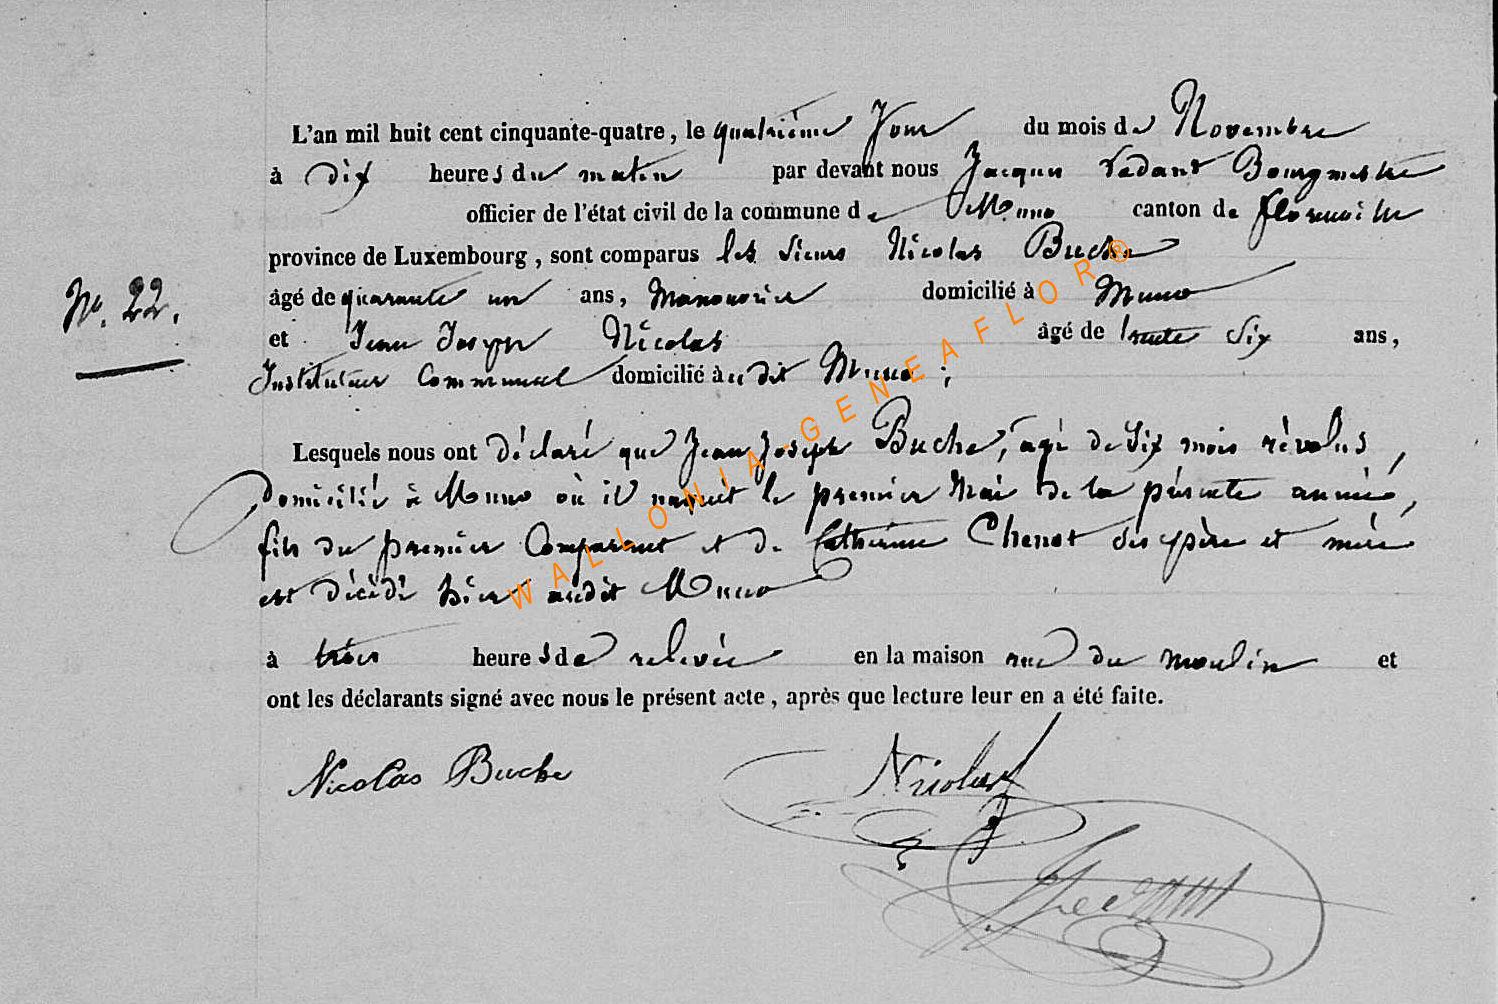 L'an mil huit cent cinquante-quatre, le quatrième Jour du mois de Novembre
à dix heures du matin par devant nous Jacques Bourgmestre
officier de l'état civil de la commune de Muno canton de florenville
province de Luxembourg, sont comparus les sieurs Nicolas Buche
N° 22. âgé de quarante un ans, Manouvrier domicilié à Muno
et Jean Joseph Nicolas âgé de trente six ans,
Instituteur Communal domicilié audit Muno ;
Lesquels nous ont déclaré que Jean Joseph Buche, agé de six mois révolus,
domicilié à Muno où il naquit le premier Mai de la présente année,
fils du premier Comparant et de Catherine Chenot ses père et mère
est décédé hier audit Muno
à trois heures de relevée en la maison rue du moulin et
ont les déclarants signé avec nous le présent acte, après que lecture leur en a été faite.
Nicolas Buche Nicolas
WALLONIA-GENEAFLOR®